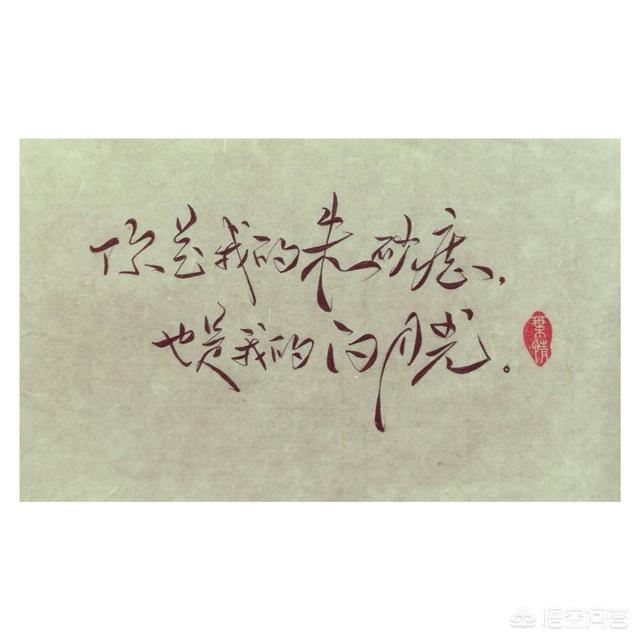 你是我的朱砂痣，
也是我的白月光。
葉情
悟空问答